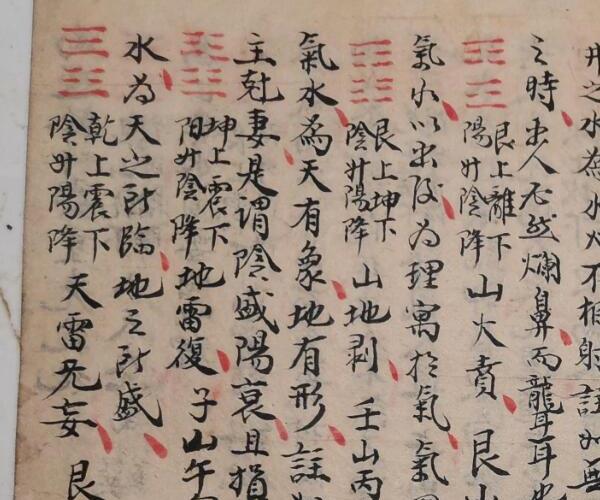 井之水為水火不相射註如無
之時出人不然爛鼻而聾耳
艮上離下
陽升陰降
山火賁 艮山
氣水以出為理寓於氣氣
艮上坤下
陰升陽降
山地剥 壬山丙
氣水為天有象地有形註
主尅妻是謂陰盛陽衰且損
坤上震下
阳升陰降
地雷復 子山午
水為天之所臨地之所盛
乾上震下
陰升陽降
天雷无妄 艮